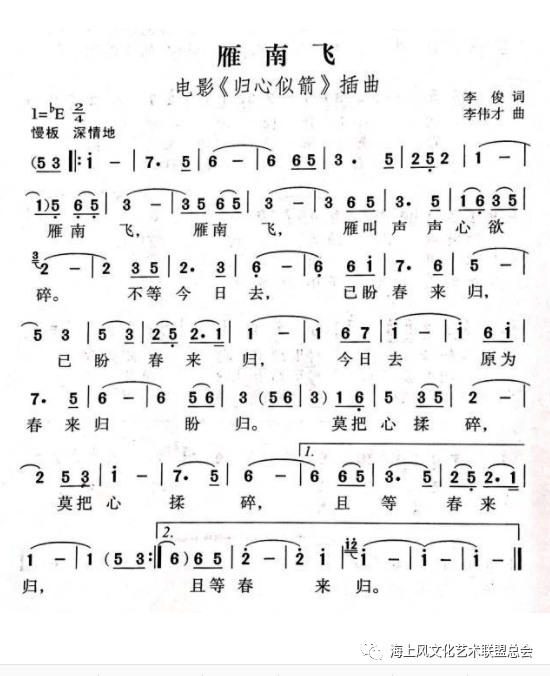 雁南飞
电影《归心似箭》插曲
李俊 词
1=♭E 2/4
李伟才 曲
慢板 深情地
(5 3 ‖: i - | 7· 5 | 6 - | 6 6 5 | 3· 5 | 2 5 2 |
1) 5 6 5 | 3 - | 3 5 6 5 | 3 - | 3 6 5 | 3· 5 | 1 6 3 5 |
雁南飞, 雁南飞, 雁叫声声心欲
3 2 - | 2 3 5 | 2· 3 | 6 - | 6 6 i | 7· 6 | 5 - |
碎。 不等今日去, 已盼春来归,
5 3 | 5 3 | 2 5 2·1 | 1 - | 1 6 7 | i - | i 6 i |
已盼春来归, 今日去 原为
7· 5 | 6 - | 6 5 6 | 3 (5 6 | 3) 1 6 | 5 3 5 | 2 - |
春来归 盼归。 莫把心揉碎,
1.
2 5 3 | i - | 7· 5 | 6 - | 6 6 5 | 3· 5 | 2 5 2·1 |
莫把心揉碎, 且等春来
2.
1 - | 1 (5 3 :‖ 1 6) 6 5 | 2 - | 2 i | i2 i - | i - | i - ‖
归, 且等春来归。
海上风文化艺术联盟总会